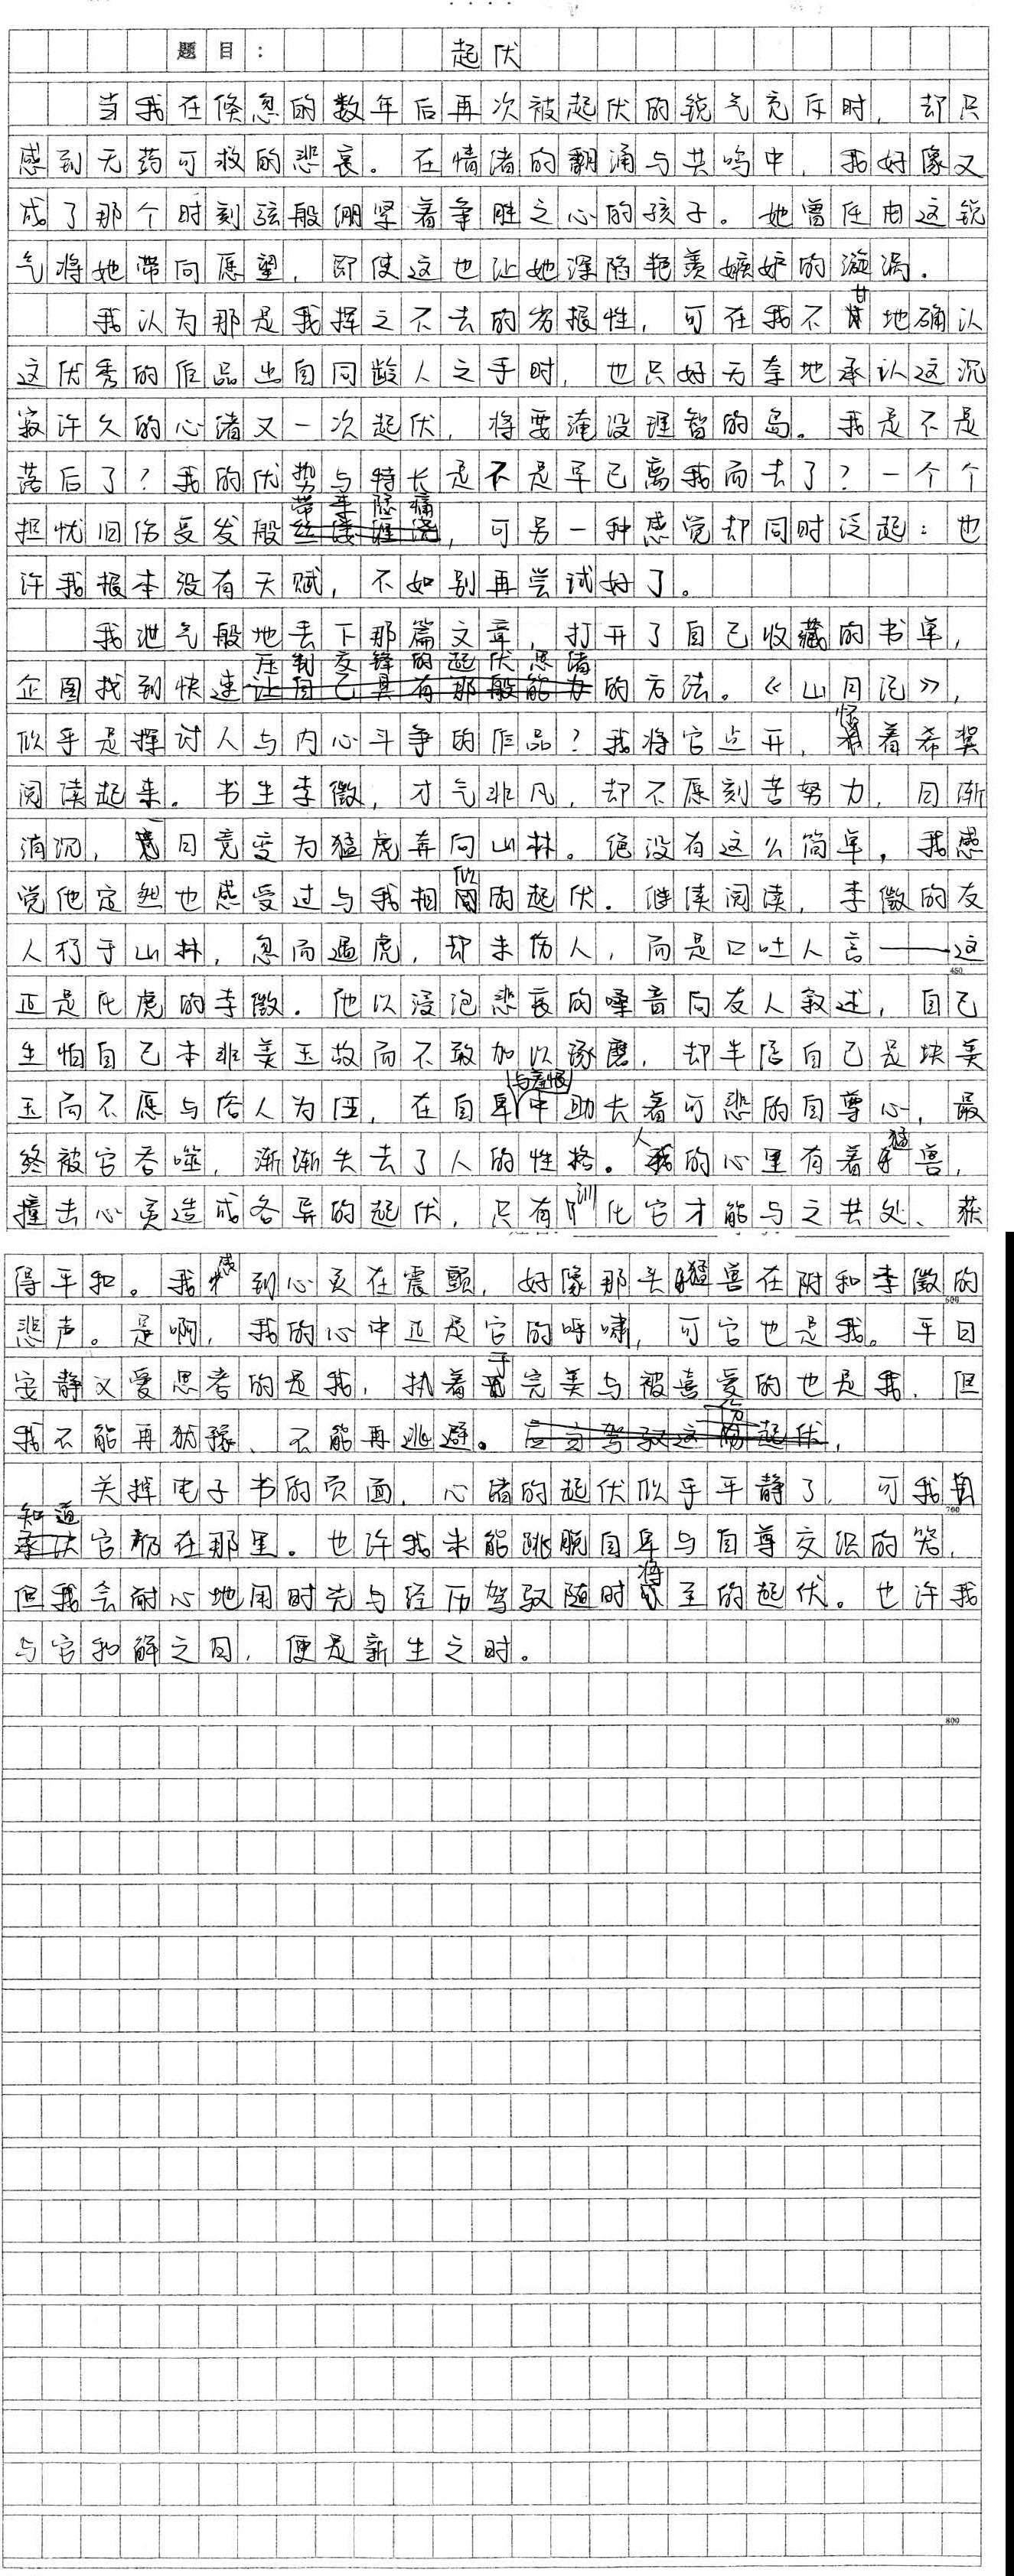 题目: 起伏
当我在倏忽的数年后再次被起伏的锐气充斥时，却只
感到无药可救的悲哀。在情绪的翻涌与共鸣中，我好像又
成了那个时刻弦般绷坚着争胜之心的孩子。她曾任由这锐
气将她带向愿望，即使这也让她深陷艳羡嫉妒的漩涡。
我认为那是我挥之不去的劣根性，可在我不甘地确认
这优秀的作品出自同龄人之手时，也只好无奈地承认这沉
寂许久的心绪又一次起伏，将要淹没理智的岛。我是不是
落后了？我的优势与特长是不是早已离我而去了？一个个
担忧旧伤复发般带来隐痛，可另一种感觉却同时泛起：也
许我根本没有天赋，不如别再尝试好了。
我泄气般地丢下那篇文章，打开了自己收藏的书单，
企图找到快速压制交锋的起伏思绪的方法。《山月记》，
似乎是探讨人与内心斗争的作品？我将它点开，怀着希冀
阅读起来。书生李徵，才气非凡，却不愿刻苦努力，日渐
消沉，竟变为猛虎奔向山林。绝没有这么简单，我感
觉他定然也感受过与我相似的起伏。继续阅读，李徵的友
人行于山林，忽而遇虎，却未伤人，而是口吐人言——这
正是化虎的李徵。他以浸泡悲哀的嗓音向友人叙述，自己
生怕自己本非美玉故而不敢加以琢磨，却半信自己是块美
玉而不愿与俗人为伍，在自卑与羞恨中助长着可悲的自尊心，最
终被它吞噬，渐渐失去了人的性格。人的心里有着猛兽，
撞击心灵造成各异的起伏，只有驯化它才能与之共处、获
得平和。我感到心灵在震颤，好像那头猛兽在附和李徵的
悲声。是啊，我的心中正是它的呼啸，可它也是我。平日
安静又爱思考的是我，执着于完美与被喜爱的也是我，但
我不能再犹豫、不能再逃避。
关掉电子书的页面，心绪的起伏似乎平静了，可我
知道它仍在那里。也许我未能跳脱自卑与自尊交织的笼，
但我会耐心地用时光与经历驾驭随时将至的起伏。也许我
与它和解之日，便是新生之时。